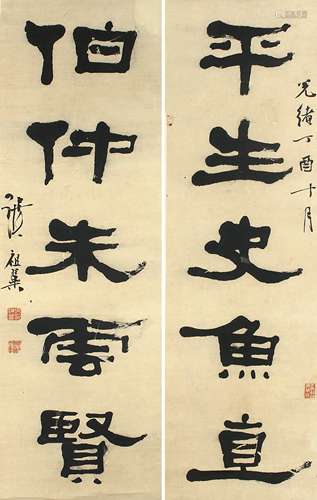 平生史魚直
光緒丁酉十月
伯仲朱雲賢
張祖翼